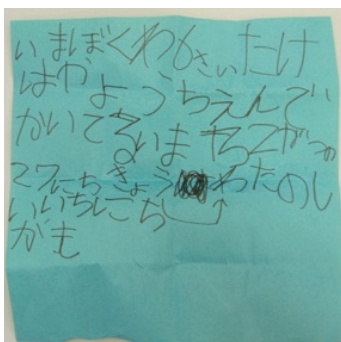 いまぼくわ6さいたけ
はやようちえんで
かいてるいま
2がつの
27にちきょうわたのし
いいちにち
かも